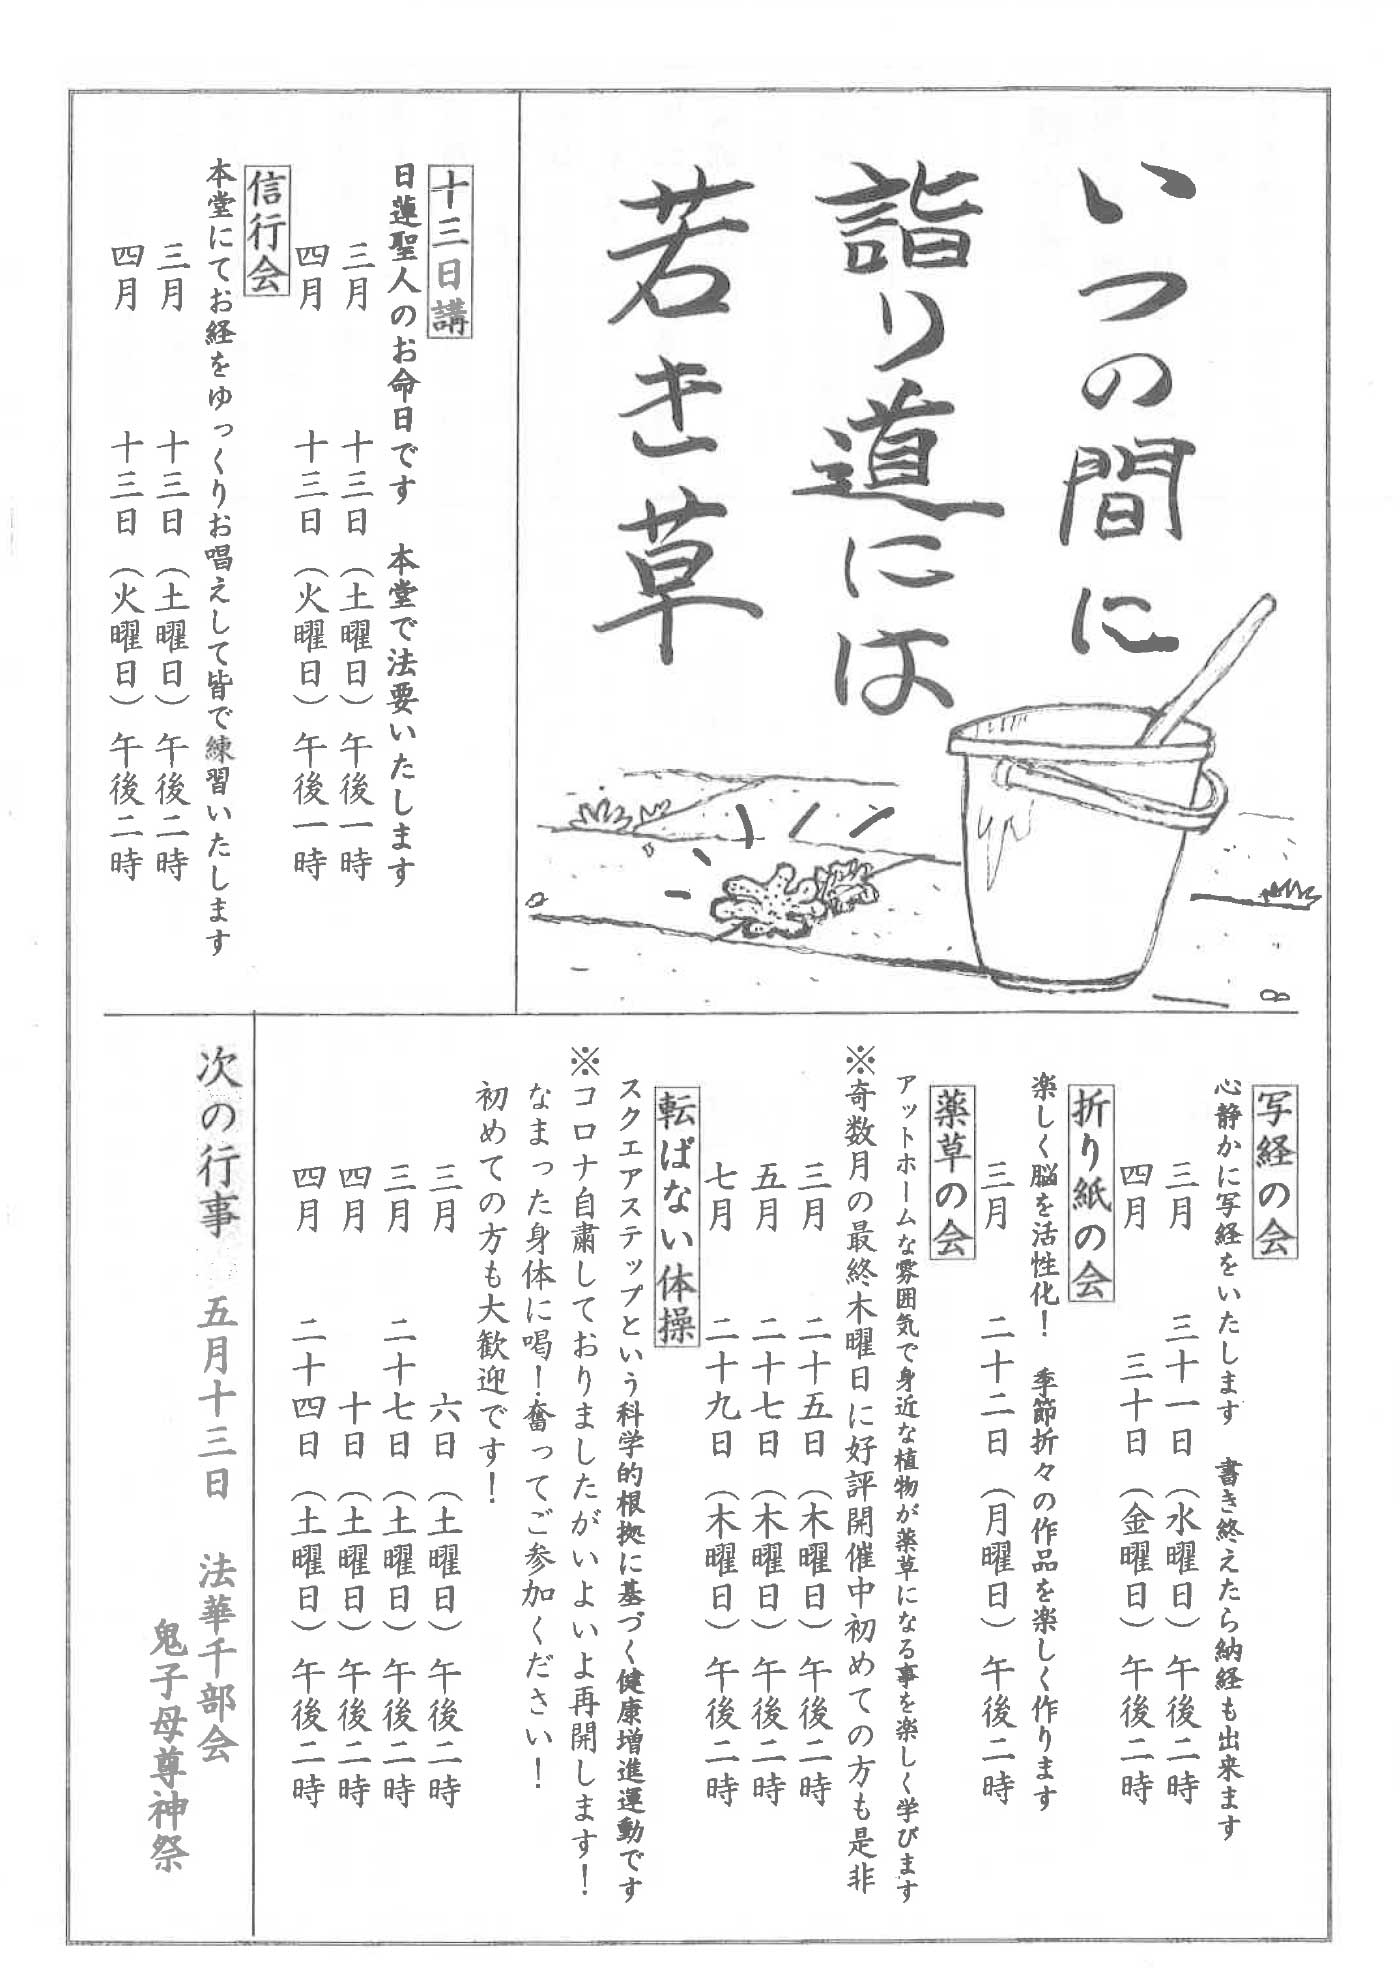 いつの間に
詣り道には
若き草
十三日講
日蓮聖人のお命日です　本堂で法要いたします
三月　十三日（土曜日）午後一時
四月　十三日（火曜日）午後一時
信行会
本堂にてお経をゆっくりお唱えして皆で練習いたします
三月　十三日（土曜日）午後二時
四月　十三日（火曜日）午後二時
写経の会
心静かに写経をいたします　書き終えたら納経も出来ます
三月　三十一日（水曜日）午後二時
四月　三十日（金曜日）午後二時
折り紙の会
楽しく脳を活性化！　季節折々の作品を楽しく作ります
三月　二十二日（月曜日）午後二時
薬草の会
アットホームな雰囲気で身近な植物が薬草になる事を楽しく学びます
※奇数月の最終木曜日に好評開催中初めての方も是非
三月　二十五日（木曜日）午後二時
五月　二十七日（木曜日）午後二時
七月　二十九日（木曜日）午後二時
転ばない体操
スクエアステップという科学的根拠に基づく健康増進運動です
※コロナ自粛しておりましたがいよいよ再開します！
なまった身体に喝！奮ってご参加ください！
初めての方も大歓迎です！
三月　六日（土曜日）午後二時
三月　二十七日（土曜日）午後二時
四月　十日（土曜日）午後二時
四月　二十四日（土曜日）午後二時
次の行事　五月十三日　法華千部会
鬼子母尊神祭